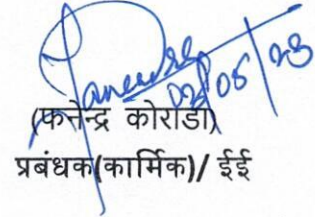 02/05/23
(फनेन्द्र कोराडा)
प्रबंधक(कार्मिक)/ ईई